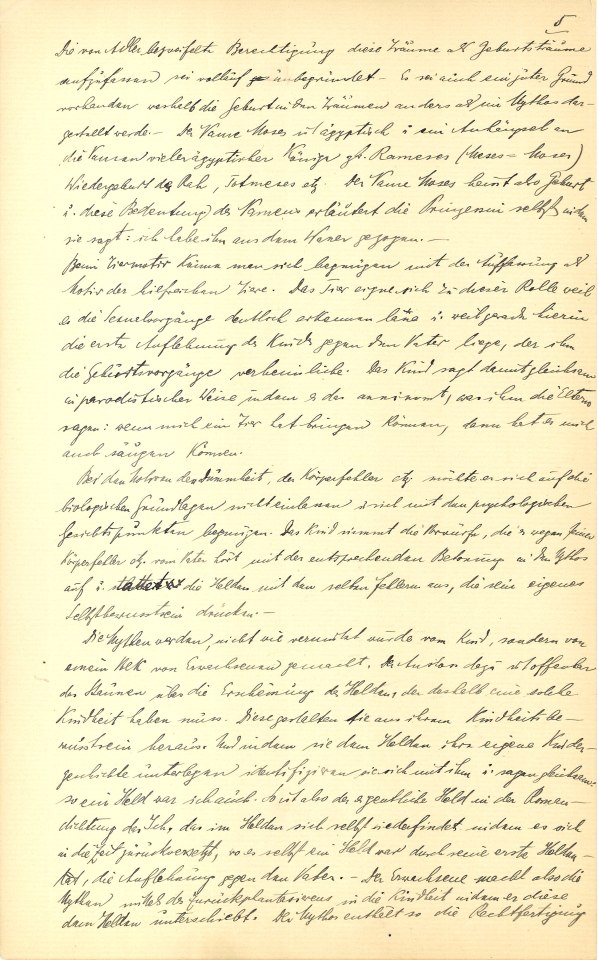 5
Die von Adler bezweifelte Berechtigung diese Träume als Geburtsträume
aufzufassen sei vollauf unbegründet. – Es sei auch ein guter Grund
vorhanden weshalb die Geburt in den Träumen anders als im Mythos dar-
gestellt werde. – Der Name Moses ist ägyptisch u ein Anhängsel an
die Namen vieler ägyptischer Könige z.b. Rameses (Meses = Moses)
Wiedergeburt des Rah, Totmeses etz. Der Name Moses heisst also Geburt
u. diese Bedeutung des Namens erläutert die Prinzessin selbst indem
sie sagt: ich habe ihn aus dem Wasser gezogen. –
Beim Tiermotiv könne man sich begnügen mit der Auffassung als
Motiv der hilfreichen Tiere. Das Tier eigne sich zu dieser Rolle weil
es die Sexualvorgänge deutlich erkennen lässt u. weil gerade hierin
die erste Auflehnung des Kindes gegen den Vater liege, der ihm
die Geburtsvorgänge verheimliche. Das Kind sagt damit gleichsam
in parodistischer Weise indem er das annimmt, was ihm die Eltern
sagen: wenn mich ein Tier hat bringen können, dann hat es mich
auch säugen können.
Bei den Motiven der Dummheit, der Körperfehler etz. möchte er sich auf die
biologischen Grundlagen nicht einlassen u sich mit den psychologischen
Gesichtspunkten begnügen. Das Kind nimmt die Vorwürfe, die es wegen seiner
Körperfehler etz. vom Vater hört mit der entsprechenden Betonung in den Mythos
auf u. stattet die Helden mit den selben Fehlern aus, die sein eigenes
Selbstbewusstsein drücken. –
Die Mythen werden, nicht wie vermutet wurde vom Kind, sondern von
einem Volk von Erwachsenen gemacht. Der Anlass dazu ist offenbar
das Staunen über die Erscheinung des Helden, der deshalb eine solche
Kindheit haben muss. Diese gestalten sie aus ihrem Kindheitsbe-
wusstsein heraus. Und indem sie dem Helden ihre eigene Kinder-
geschichte unterlegen identifiziren sie sich mit ihm u. sagen gleichsam:
so ein Held war ich auch. So ist also der eigentliche Held in der Roman-
dichtung das Ich, das im Helden sich selbst wiederfindet indem es sich
in die Zeit zurückversetzt, wo es selbst ein Held war durch seine erste Helden-
tat, die Auflehnung gegen den Vater. – Der Erwachsene macht also die
Mythen mittels des Zurückphantasirens in die Kindheit indem er diese
dem Helden unterschiebt. Der Mythos enthält so die Rechtfertigung